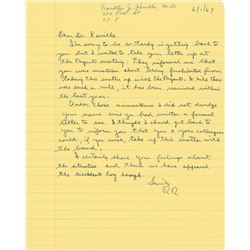 Franklin J. Neville M.D.
6/1/67
Dear Dr. Neville
I'm sorry to be so tardy in getting back to
you but I waited to take your letter up at
the Regents meeting. They informed me that
you was mistaken about being prohibited from
taking this matter up with the Regents & while this
was such a rule, it has been rescinded within
the last year.
Under those circumstances I did not divulge
your name since you had written a personal
letter to me. I thought I should get back to
you to inform you that you & your colleagues
could, if you wish, take up this matter with
the board.
I certainly share your feelings about
the situation and think we have appeased
the dissidents long enough.
Sincerely
RR